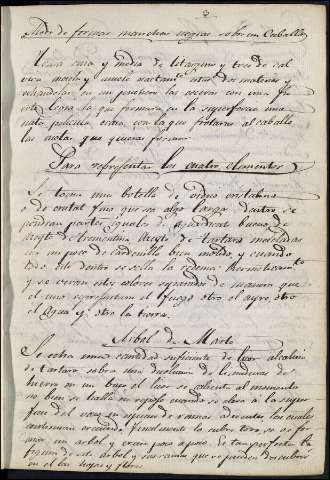 Modo de formar manchas negras sobre un Caballo
Toma onza y media de letargirio y tres de cal
viva mezcla y unelo exactamte estas dos materias y
en un puchero las con una
esta la que formara en la superficie una
nata pelicula, con la que frotaras al caballo
las notas que quieras formar
Para representar los cuatro elementos
Se toma una botella de cristalina
de cristal fino que sea algo larga dentro se
pondran partes iguales de aguardiente bueno de
Aceyte de trementina Aceyte de tartaro mezcladas
con un poco de cardenillo bien molido, y cuando
todo este dentro se sella la redoma hermeticamte
y se veran estos colores de manera que
el uno representara el fuego otro el ayre, otro
el Agua y otro la tierra.
Arbol de Marte
Se echa una cantidad suficiente de licor alcalino
de tartaro sobre una disolucion de limaduras de
hierro en un baso el licor se calienta al momento
no bien se halla en reposo cuando se eleva á la super
ficie del vaso en especie de ramas las cuales
continuan creciendo finalmente lo cubre todo se ve for
mar un arbol y crecer poco á poco. Es tan perfecta la
figura de este arbol y sus ramas que se pueden descubrir
en el las hojas y flores